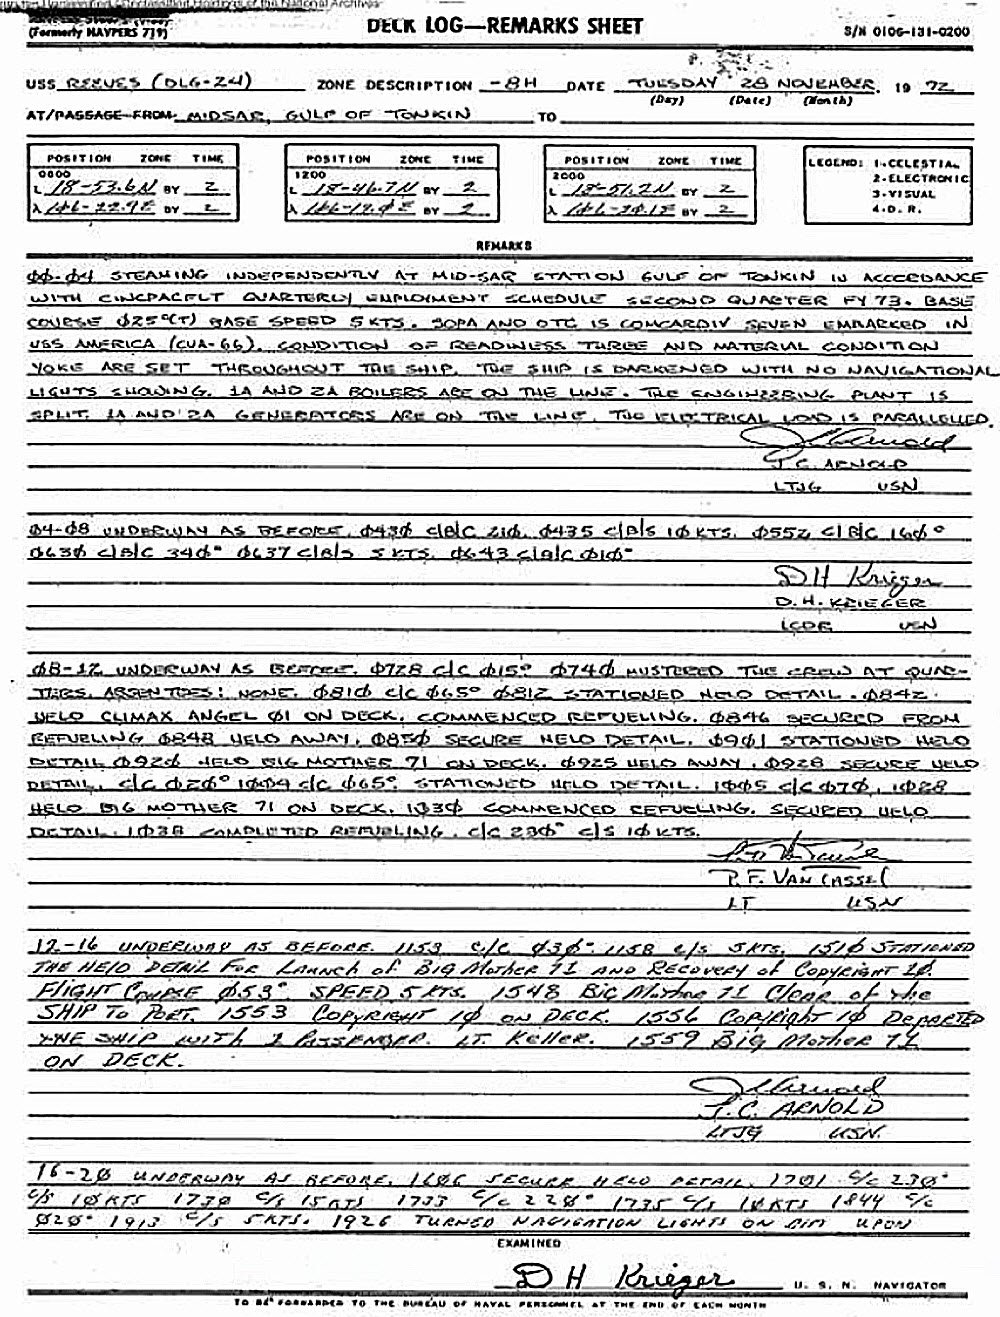 Holdings of the National Archives
(Formerly NAVPERS 719)
DECK LOG—REMARKS SHEET
S/N 0106-131-0200
USS REEVES (DLG-24) ZONE DESCRIPTION -8H DATE TUESDAY 28 NOVEMBER, 19 72
(Day) (Date) (Month)
AT/PASSAGE FROM MIDSAR, GULF OF TONKIN TO
POSITION ZONE TIME POSITION ZONE TIME POSITION ZONE TIME LEGEND: 1-CELESTIAL
0800 1200 2000 2-ELECTRONIC
L 18-53.6N BY 2 L 18-46.7N BY 2 L 18-51.2N BY 2 3-VISUAL
λ BY 2 λ BY 2 λ BY 2 4-D. R.
REMARKS
ØØ-Ø4 STEAMING INDEPENDENTLY AT MID-SAR STATION GULF OF TONKIN IN ACCORDANCE
WITH CINCPACFLT QUARTERLY EMPLOYMENT SCHEDULE SECOND QUARTER FY 73. BASE
COURSE Ø25°(T) BASE SPEED 5 KTS. SOPA AND OTC IS COMCARDIV SEVEN EMBARKED IN
USS AMERICA (CVA-66). CONDITION OF READINESS THREE AND MATERIAL CONDITION
YOKE ARE SET THROUGHOUT THE SHIP. THE SHIP IS DARKENED WITH NO NAVIGATIONAL
LIGHTS SHOWING. 1A AND 2A BOILERS ARE ON THE LINE. THE ENGINEERING PLANT IS
SPLIT. 1A AND 2A GENERATORS ARE ON THE LINE. THE ELECTRICAL LOAD IS PARALLELLED.
J C Arnold
J. C. ARNOLD
LTJG USN
Ø4-Ø8 UNDERWAY AS BEFORE. Ø43Ø C/B/C 21Ø. Ø435 C/B/S 1Ø KTS. Ø552 C/B/C 16Ø°
Ø63Ø C/B/C 34Ø° Ø637 C/B/S 5 KTS. Ø643 C/B/C Ø1Ø°
D H Krieger
D. H. KRIEGER
LCDR USN
Ø8-12 UNDERWAY AS BEFORE. Ø728 C/C Ø15° Ø74Ø MUSTERED THE CREW AT QUAR-
TERS. ABSENTEES: NONE. Ø81Ø C/C Ø65° Ø812 STATIONED HELO DETAIL. Ø842
HELO CLIMAX ANGEL Ø1 ON DECK. COMMENCED REFUELING. Ø846 SECURED FROM
REFUELING Ø848 HELO AWAY. Ø85Ø SECURE HELO DETAIL. Ø9Ø1 STATIONED HELO
DETAIL Ø92Ø HELO BIG MOTHER 71 ON DECK. Ø925 HELO AWAY. Ø928 SECURE HELO
DETAIL. C/C Ø2Ø° 1ØØ4 C/C Ø65° STATIONED HELO DETAIL. 1ØØ5 C/C Ø7Ø, 1Ø28
HELO BIG MOTHER 71 ON DECK. 1Ø3Ø COMMENCED REFUELING. SECURED HELO
DETAIL. 1Ø38 COMPLETED REFUELING. C/C 23Ø° C/S 1Ø KTS.
P. F. VAN CASSEL
LT USN
12-16 UNDERWAY AS BEFORE. 1153 C/C Ø3Ø° 1158 C/S 5 KTS. 151Ø STATIONED
THE HELO DETAIL FOR LAUNCH OF BIG MOTHER 71 AND RECOVERY OF COPYRIGHT 1Ø.
FLIGHT COURSE Ø53°. SPEED 5 KTS. 1548 BIG MOTHER 71 CLEAR OF THE
SHIP TO PORT. 1553 COPYRIGHT 1Ø ON DECK. 1556 COPYRIGHT 1Ø DEPARTED
THE SHIP WITH 1 PASSENGER. LT. KELLER. 1559 BIG MOTHER 71
ON DECK.
J C Arnold
J. C. ARNOLD
LTJG USN.
16-2Ø UNDERWAY AS BEFORE. 16Ø6 SECURE HELO DETAIL. 17Ø1 C/C 23Ø°
C/S 1Ø KTS 173Ø C/S 15 KTS 1733 C/C 22Ø° 1735 C/S 1Ø KTS 1844 C/C
Ø2Ø° 1913 C/S 5 KTS. 1926 TURNED NAVIGATION LIGHTS ON DIM UPON
EXAMINED
D H Krieger U. S. N. NAVIGATOR
TO BE FORWARDED TO THE BUREAU OF NAVAL PERSONNEL AT THE END OF EACH MONTH